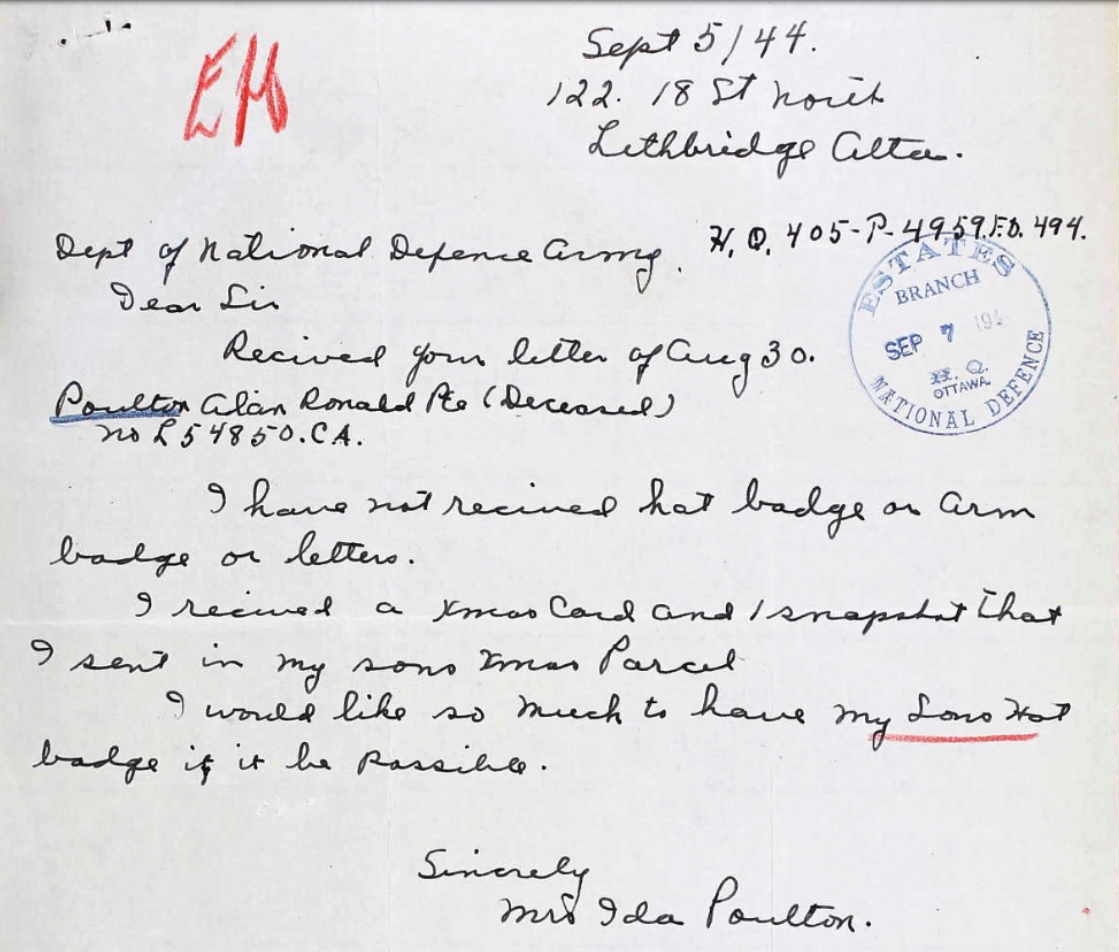 EM
Sept 5/44.
122. 18 St North
Lethbridge Alta.
H.Q. 405-P-4959.F.D. 494.
Dept of National Defence Army.
ESTATES
BRANCH
SEP 7 194
H.Q.
OTTAWA.
NATIONAL DEFENCE
Dear Sir
Recived your letter of Aug 30.
Poulton Alan Ronald Pte (Deceased)
No L54850.C.A.
I have not recived hat badge or arm
badge or letters.
I recived a Xmas Card and 1 snapshot that
I sent in my sons Xmas Parcel
I would like so much to have my Sons Hat
badge if it be possible.
Sincrely
Mrs Ida Poulton.